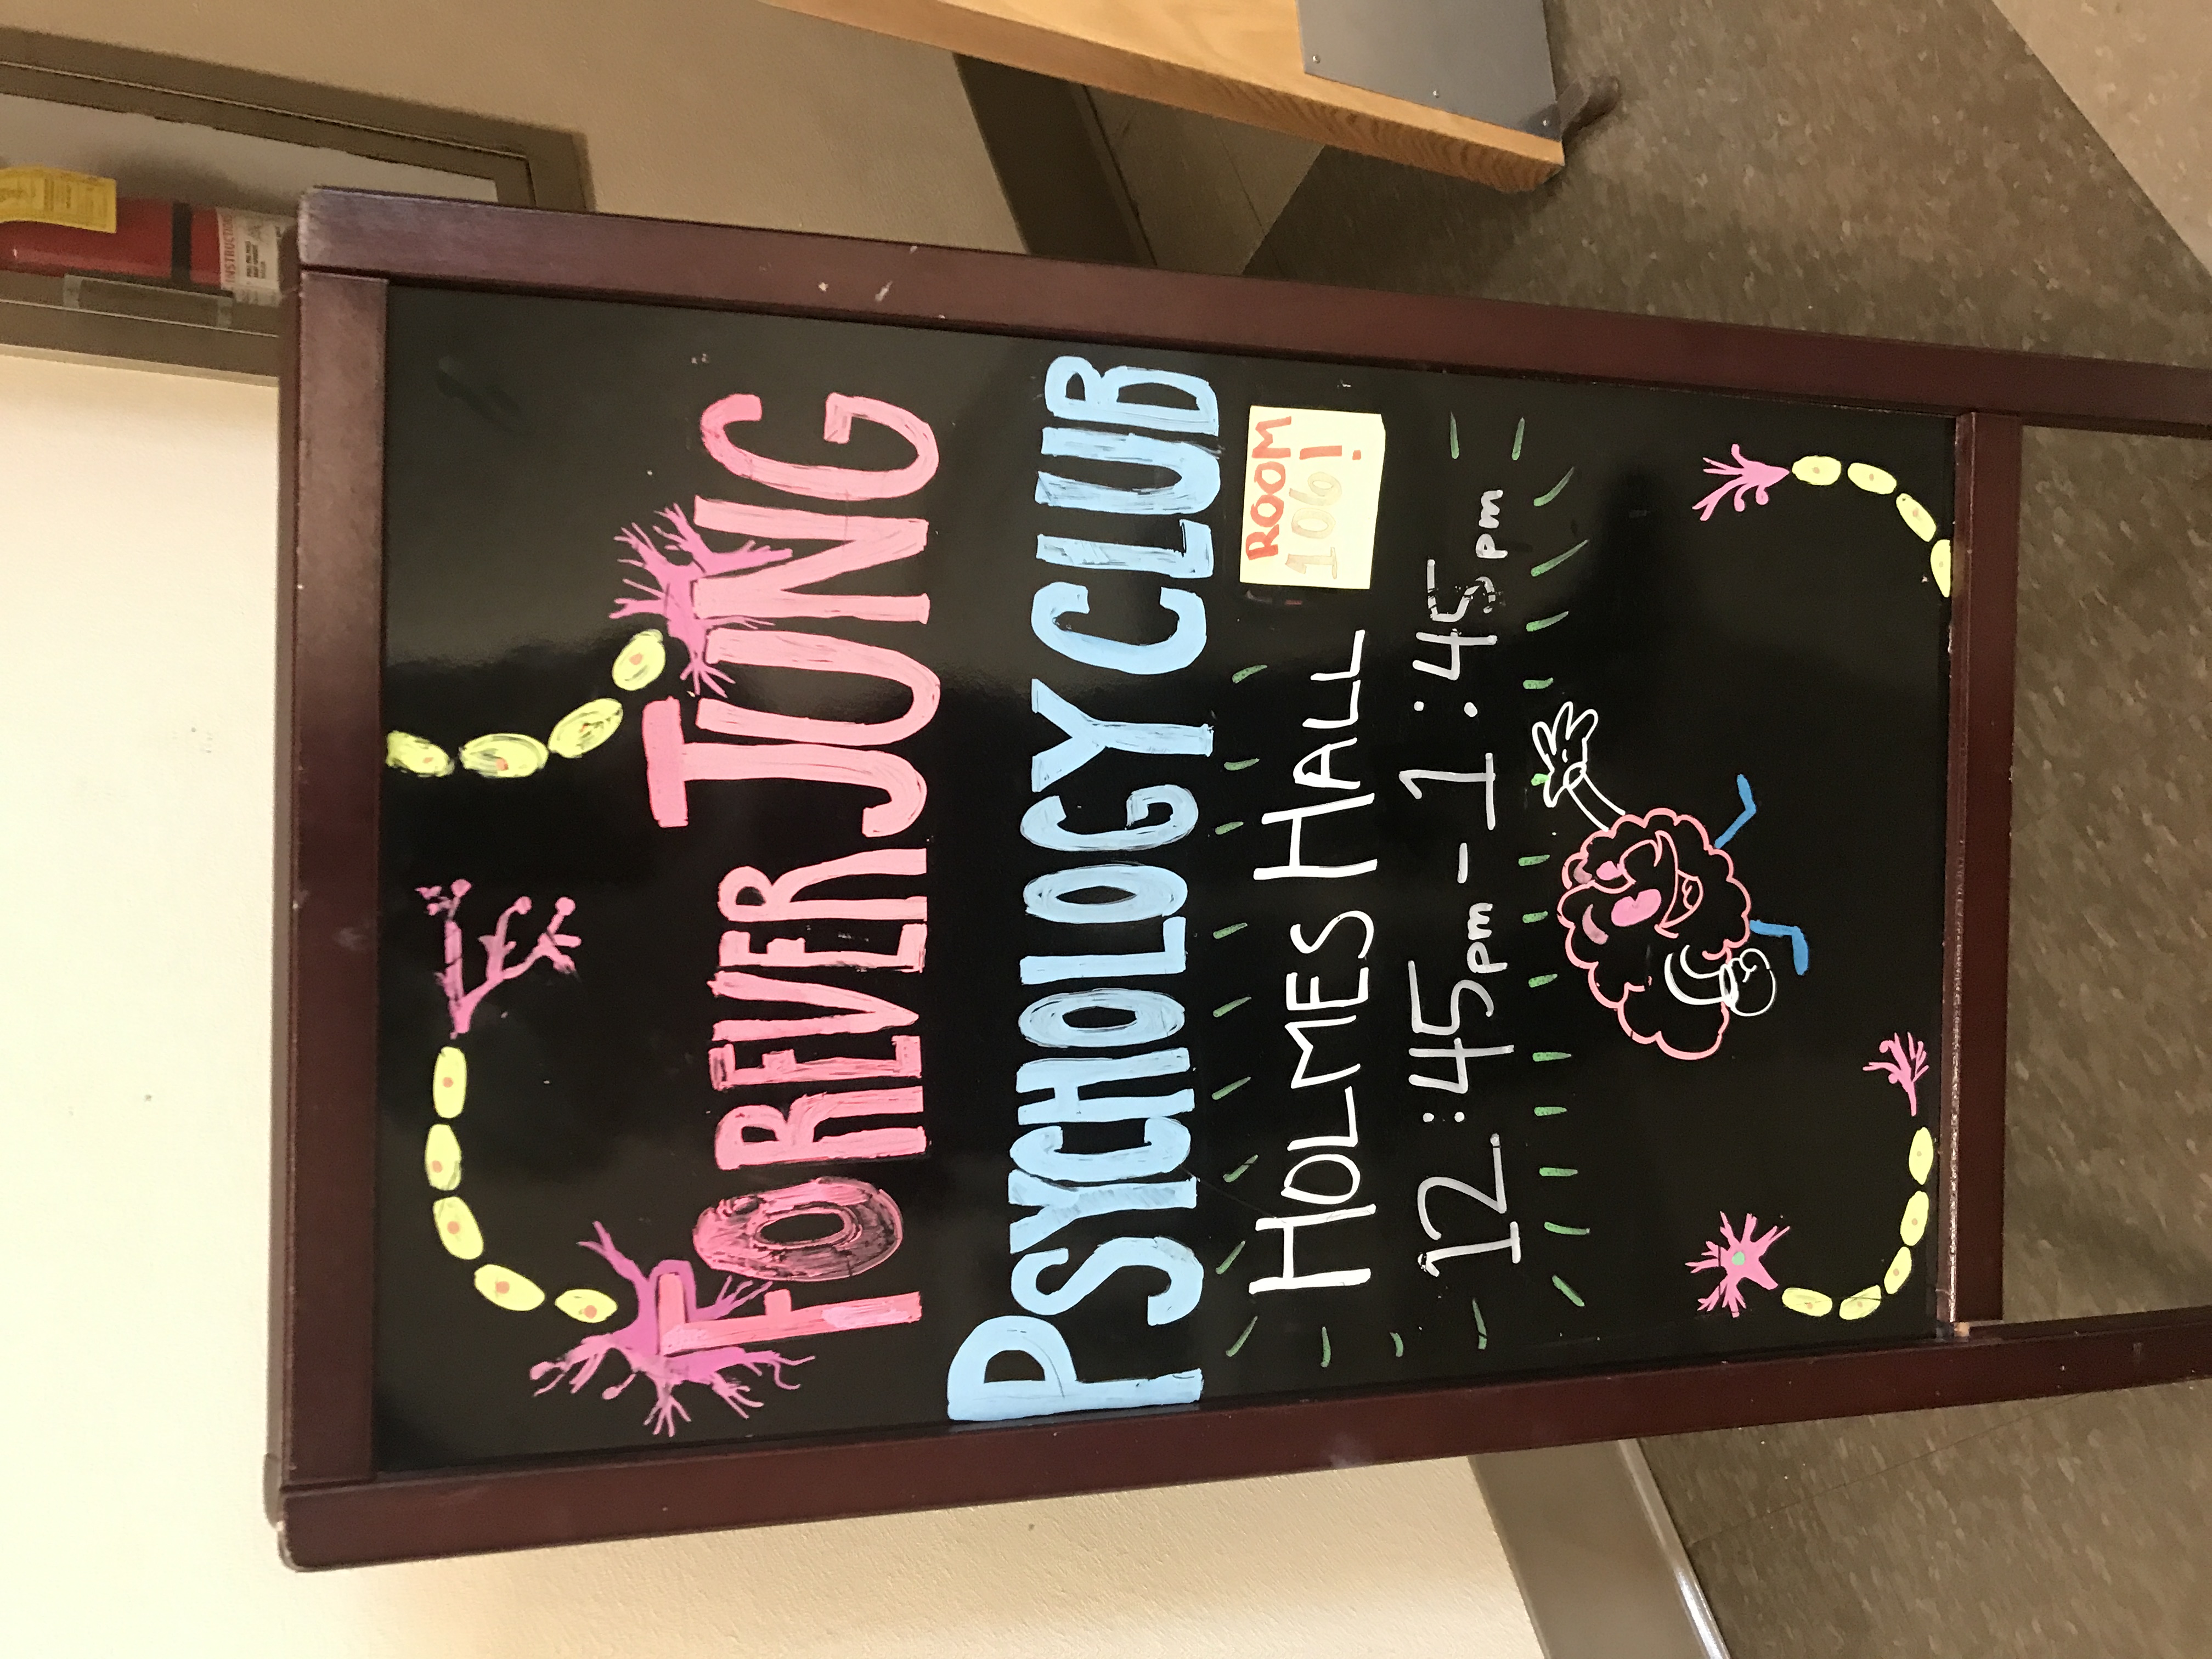 FOREVER JUNG
PSYCHOLOGY CLUB
HOLMES HALL
ROOM
106!
12:45pm - 1:45pm
INSTRUCTIO